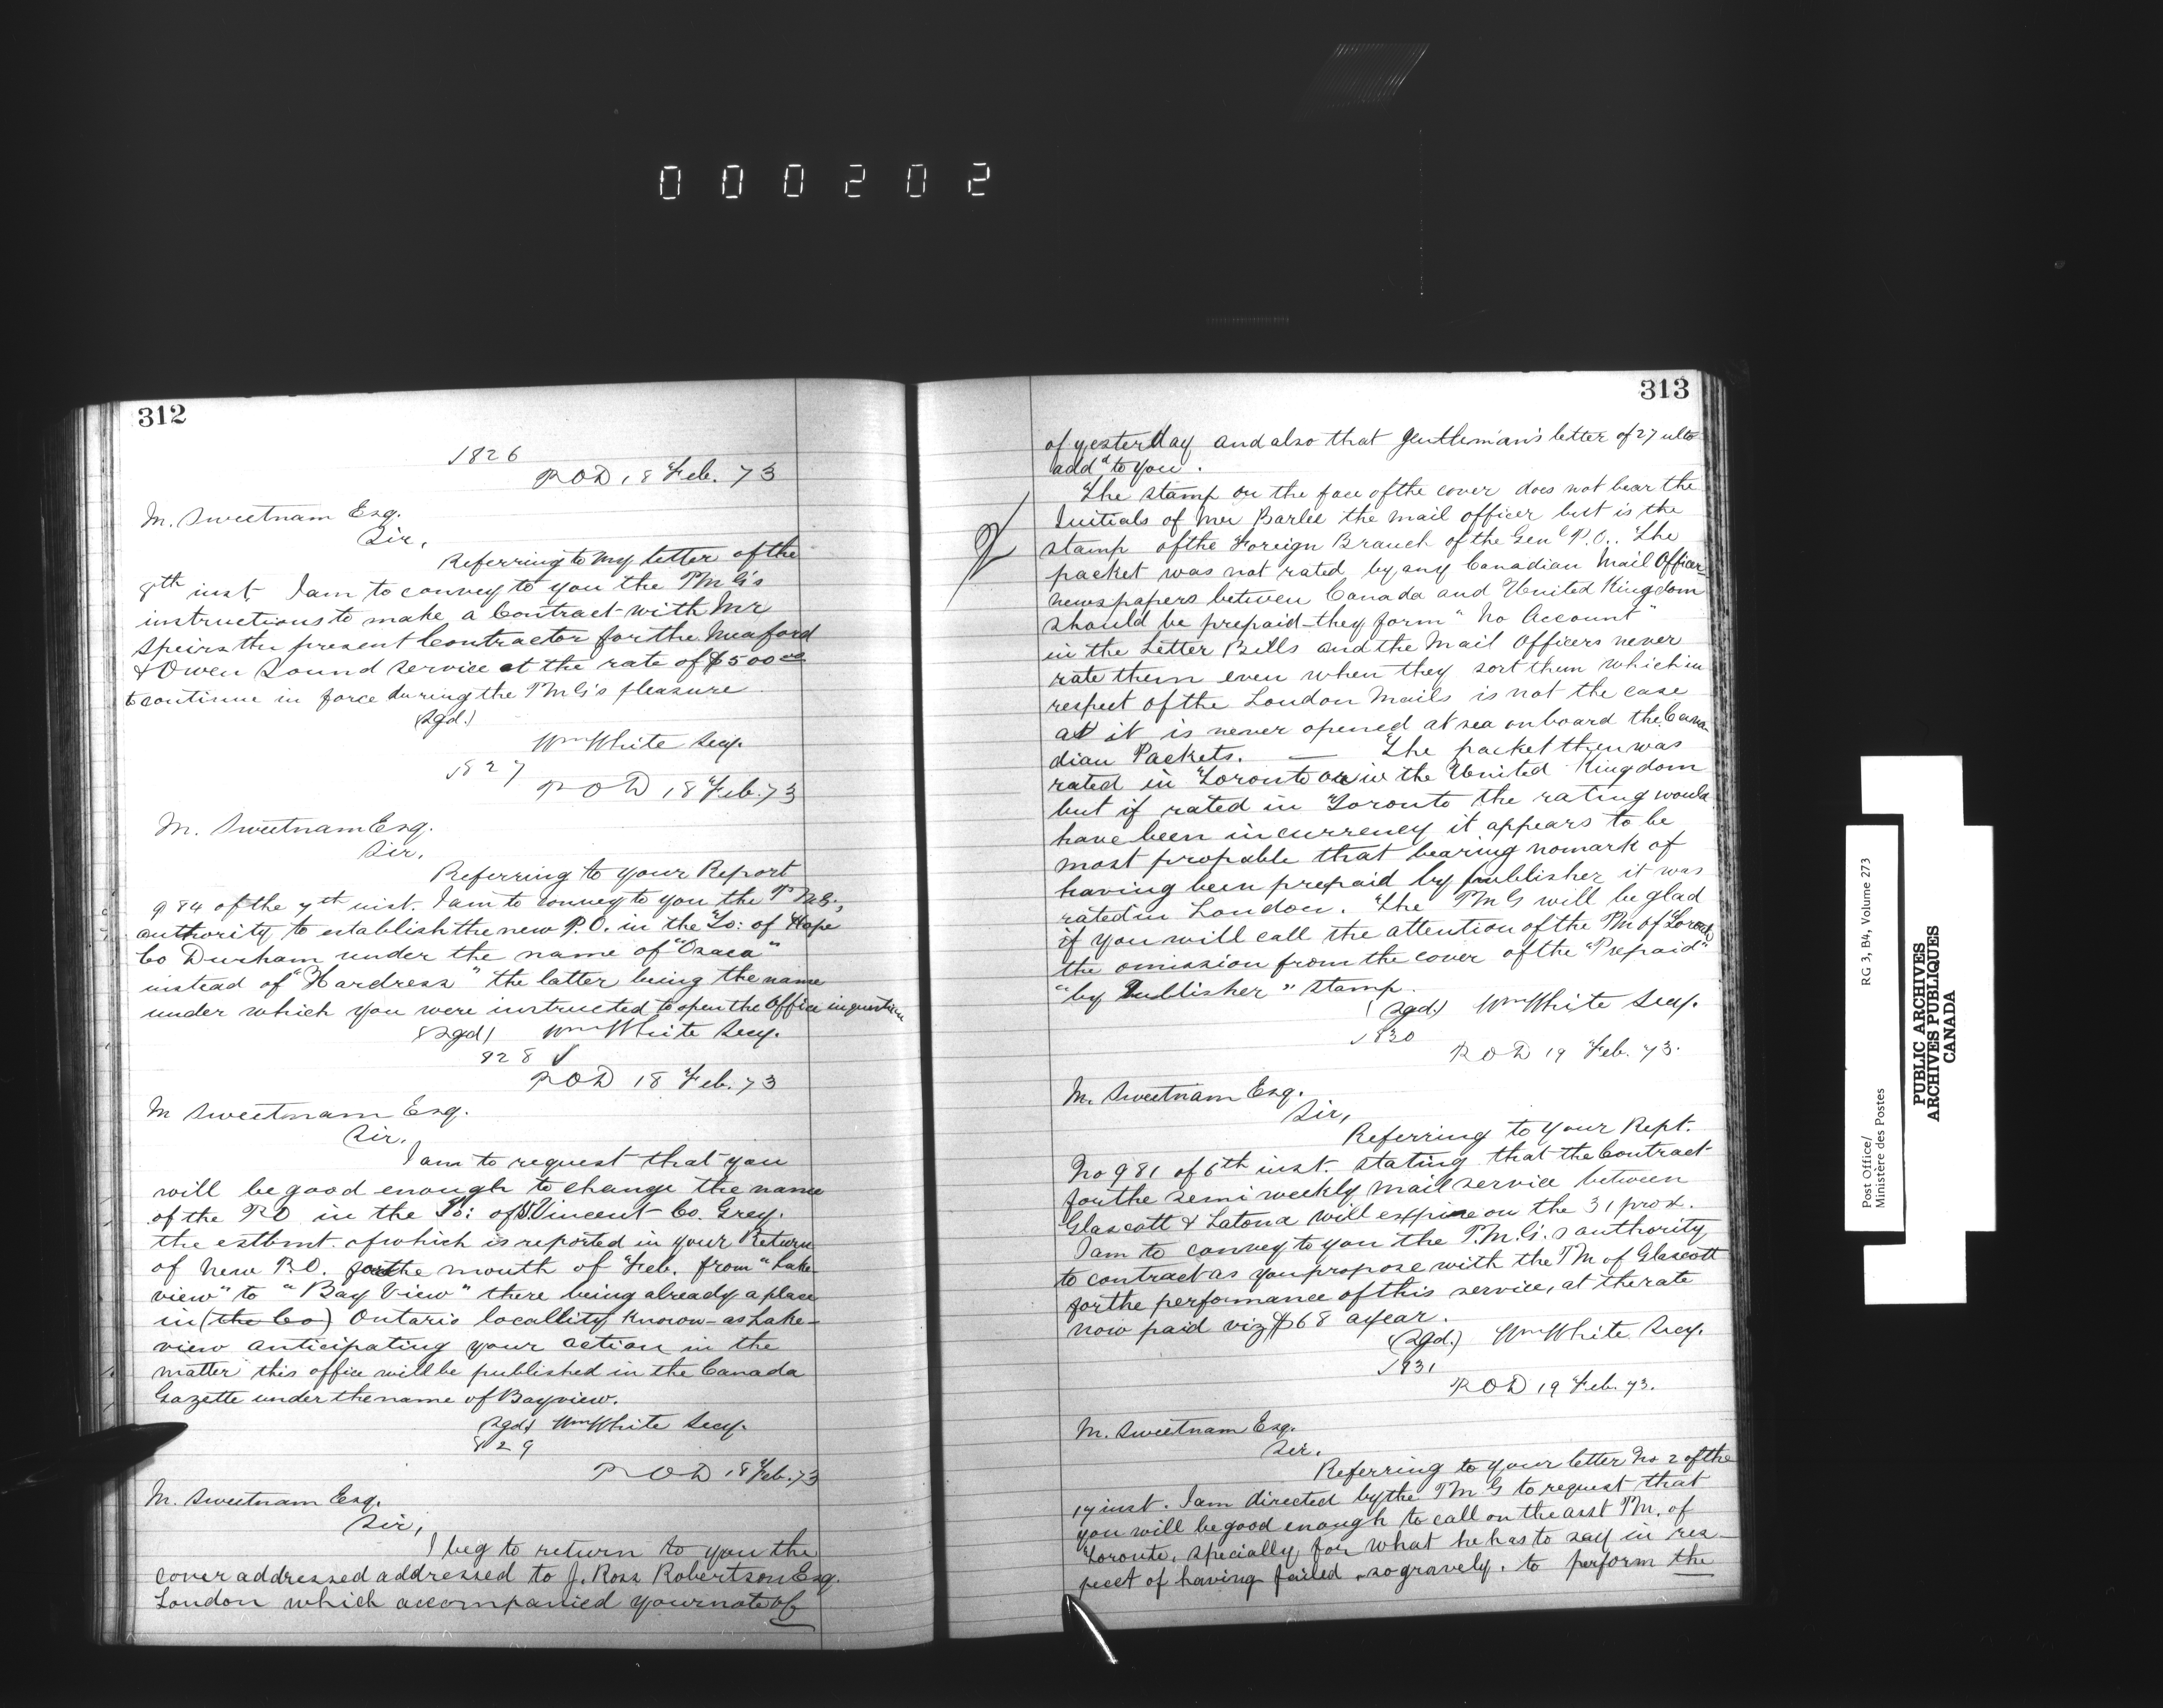 000202
312
1826
POD 18 Feb. 73
M. Sweetnam Esq.
Sir,
Referring to my letter of the
8th inst. I am to convey to you the PMG's
instructions to make a Contract with Mr
Speirs the present Contractor for the Meaford
& Owen Sound service at the rate of $500 00
to continue in force during the PMG's pleasure
(Sgd.)
Wm White Secy.
1827
POD 18 Feb. 73
M. Sweetnam Esq.
Sir,
Referring to your Report
984 of the 7th inst. I am to convey to you the PMG's
authority to establish the new P.O. in the To: of Hope
Co Durham under the name of "Osaca"
instead of "Hardress" the latter being the name
under which you were instructed to open the Office in question
(Sgd) Wm White Secy.
828
POD 18 Feb. 73
M Sweetnam Esq.
Sir,
I am to request that you
will be good enough to change the name
of the PO in the To: of St Vincent Co. Grey.
the estbmt. of which is reported in your Return
of New P.O. for the month of Feb. from "Lake
view" to "Bay View" there being already a place
in (the Co) Ontario locallity known as Lake-
view anticipating your action in the
matter this office will be published in the Canada
Gazette under the name of Bayview.
(Sgd) Wm White Secy.
829
POD 18 Feb. 73
M. Sweetnam Esq.
Sir,
I beg to return to you the
cover addressed addressed to J. Ross Robertson Esq.
London which accompanied your note of
313
of yesterday and also that gentleman's letter of 27 ulto
addd to you.
The stamp on the face of the cover does not bear the
Initials of Mr Barlee the mail officer but is the
stamp of the Foreign Branch of the Genl P.O. The
packet was not rated by any Canadian Mail Officer
newspapers between Canada and United Kingdom
should be prepaid—they form "No Account"
in the Letter Bills and the Mail Officers never
rate them even when they sort them which in
respect of the London Mails is not the case
as it is never opened at sea onboard the Cana
dian Packets. — The packet then was
rated in Toronto or in the United Kingdom
but if rated in Toronto the rating would
have been in currency it appears to be
most propable that bearing no mark of
having been prepaid by publisher it was
rated in London. The PMG will be glad
if you will call the attention of the PM of Toronto
the omission from the cover of the "Prepaid"
"by Publisher" stamp.
(Sgd.) Wm White Secy.
1830
POD 19 Feb. 73.
M. Sweetnam Esq.
Sir,
Referring to your Rept.
No 981 of 6th inst. stating that the Contract
for the semi weekly mail service between
Glascott & Latona will expire on the 31 prox.
I am to convey to you the P.M.G.s authority
to contract as you propose with the PM of Glascott
for the performance of this service, at the rate
now paid viz $68 a year.
(Sgd.) Wm White Secy.
1831
POD 19 Feb. 73.
M. Sweetnam Esq.
Sir.
Referring to your letter No 2 of the
17 inst. I am directed by the PMG to request that
you will be good enough to call on the asst PM. of
Toronto, specially for what he has to say in res-
pect of having failed so gravely. to perform the
Post Office/
Ministère des Postes
RG 3, B4, Volume 273
PUBLIC ARCHIVES
ARCHIVES PUBLIQUES
CANADA